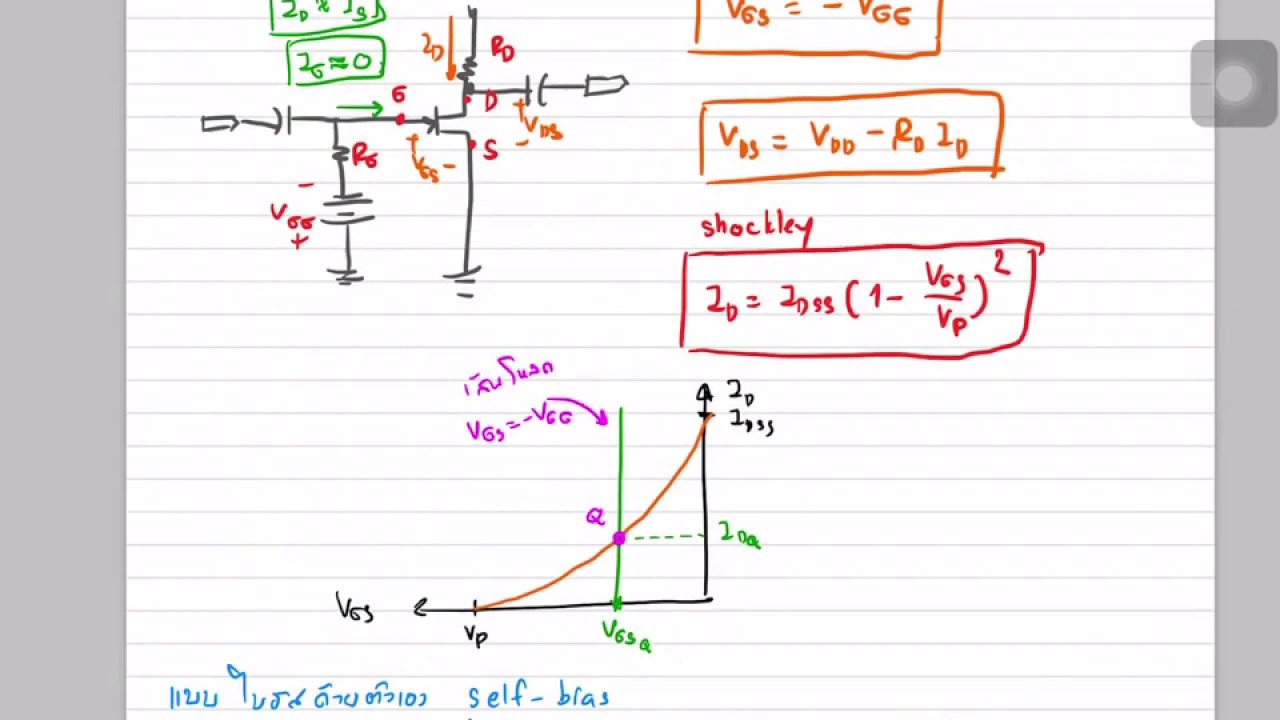 I_D ≈ I_S
V_GS = - V_GG
I_G ≈ 0
I_D
R_D
G
D
+
V_DS
-
S
+
V_GS -
R_G
-
V_GG
+
V_DS = V_DD - R_D I_D
shockley
I_D = I_DSS (1 - V_GS/V_P)^2
เส้นโหลด
V_GS = -V_GG
I_D
I_DSS
Q
I_DQ
V_GS
V_P
V_GSQ
แบบ ไบอัสด้วยตัวเอง self-bias